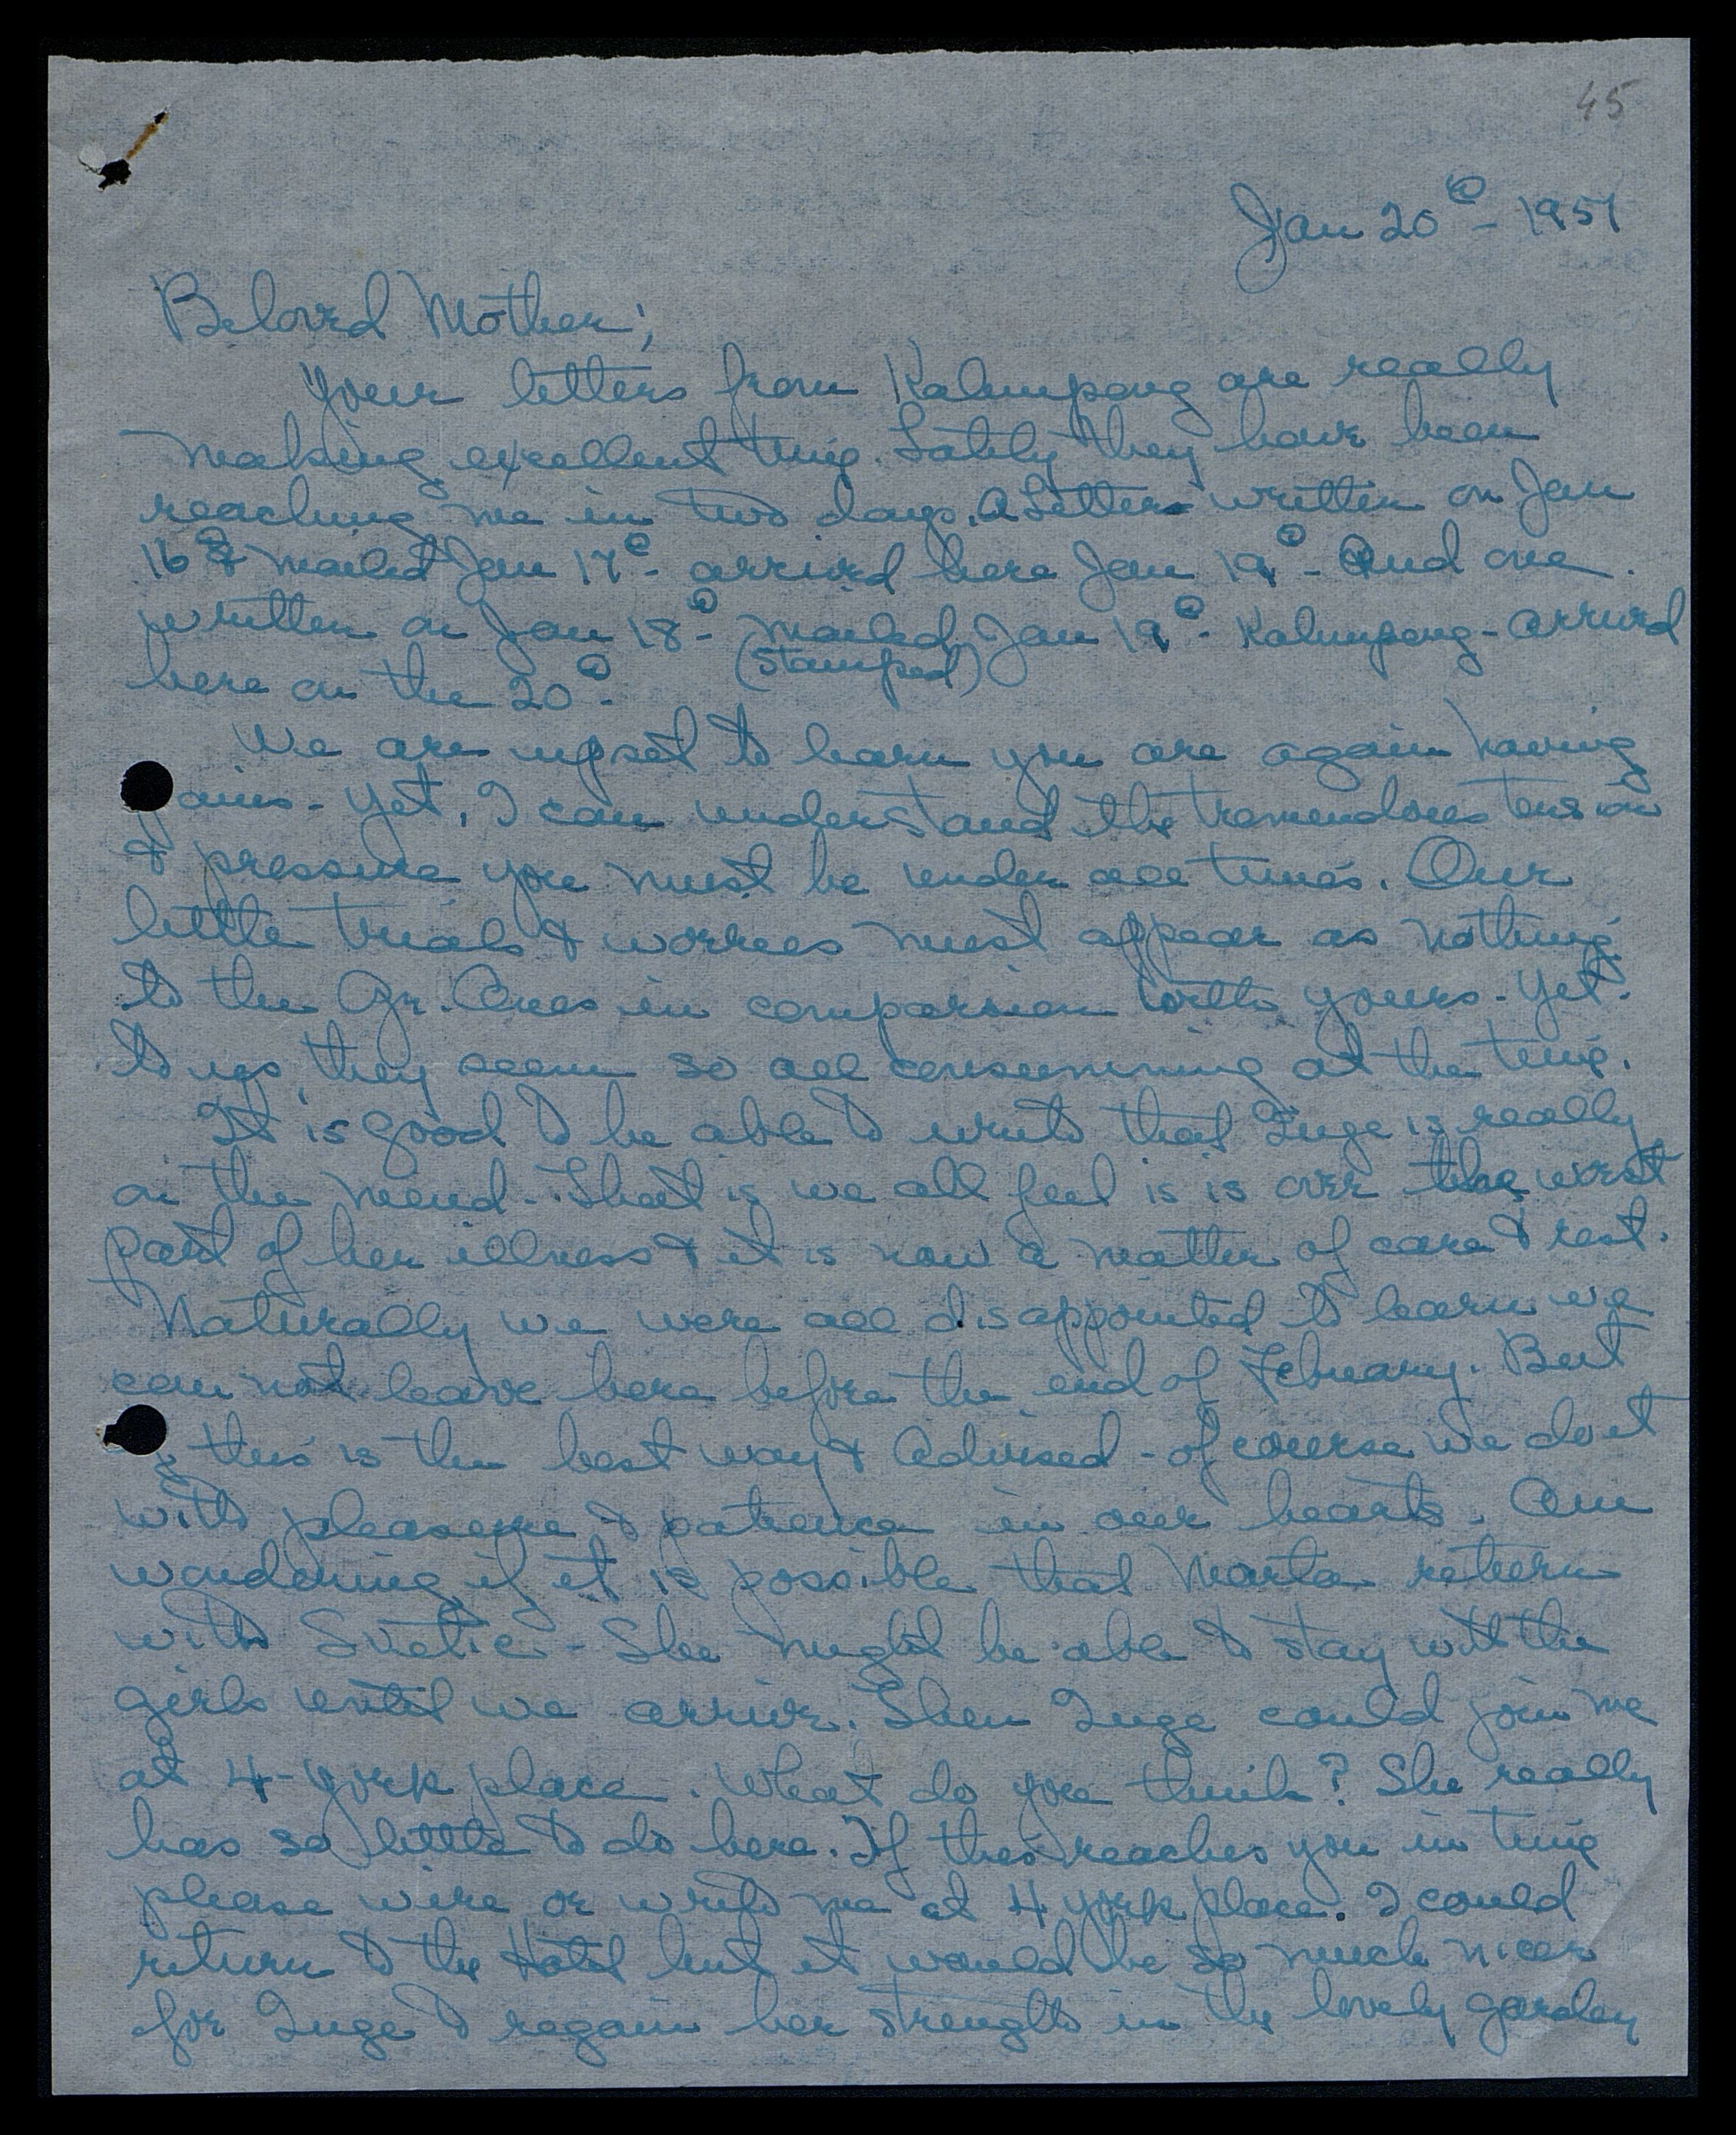 45
Jan 20th - 1951
Beloved Mother;
Your letters from Kalimpong are really
making excellent time. Lately they have been
reaching me in two days. A letter written on Jan
16th & mailed Jan 17th - arrived here Jan 19th - And one
written on Jan 18th - mailed Jan 19th - Kalimpong - arrived
(stamped)
here on the 20th -
We are upset to learn you are again having
ains - Yet, I can understand the tremendous tension
& pressure you must be under all times. Our
little trials & worries must appear as nothing
to the Gr. Ones in comparison with yours - Yet -
to us, they seem so all consumming at the time.
It is good to be able to write that Inge is really
on the mend - That is we all feel is is over the worst
part of her illness & it is now a matter of care & rest.
Naturally we were all disappointed to learn we
can not leave here before the end of February. But
this is the best way & advised - of course we do it
with pleasure & patience in our hearts. Am
wondering if it is possible that Marta return
with Svetic - She might be able to stay with the
girls until we arrive. Then Inge could join me
at 4 - York place. What do you think? She really
has so little to do here. If this reaches you in time
please wire or write me at 4 York place. I could
return to the Hotel but it would be so much nicer
for Inge to regain her strength in the lovely garden